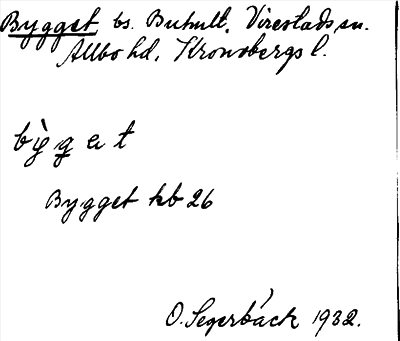 Bygget, bs. Buhult, Virestads sn.
Allbo hd, Kronobergs l.
bỳg̨ et
Bygget kb 26
O. Segerbäck 1932.